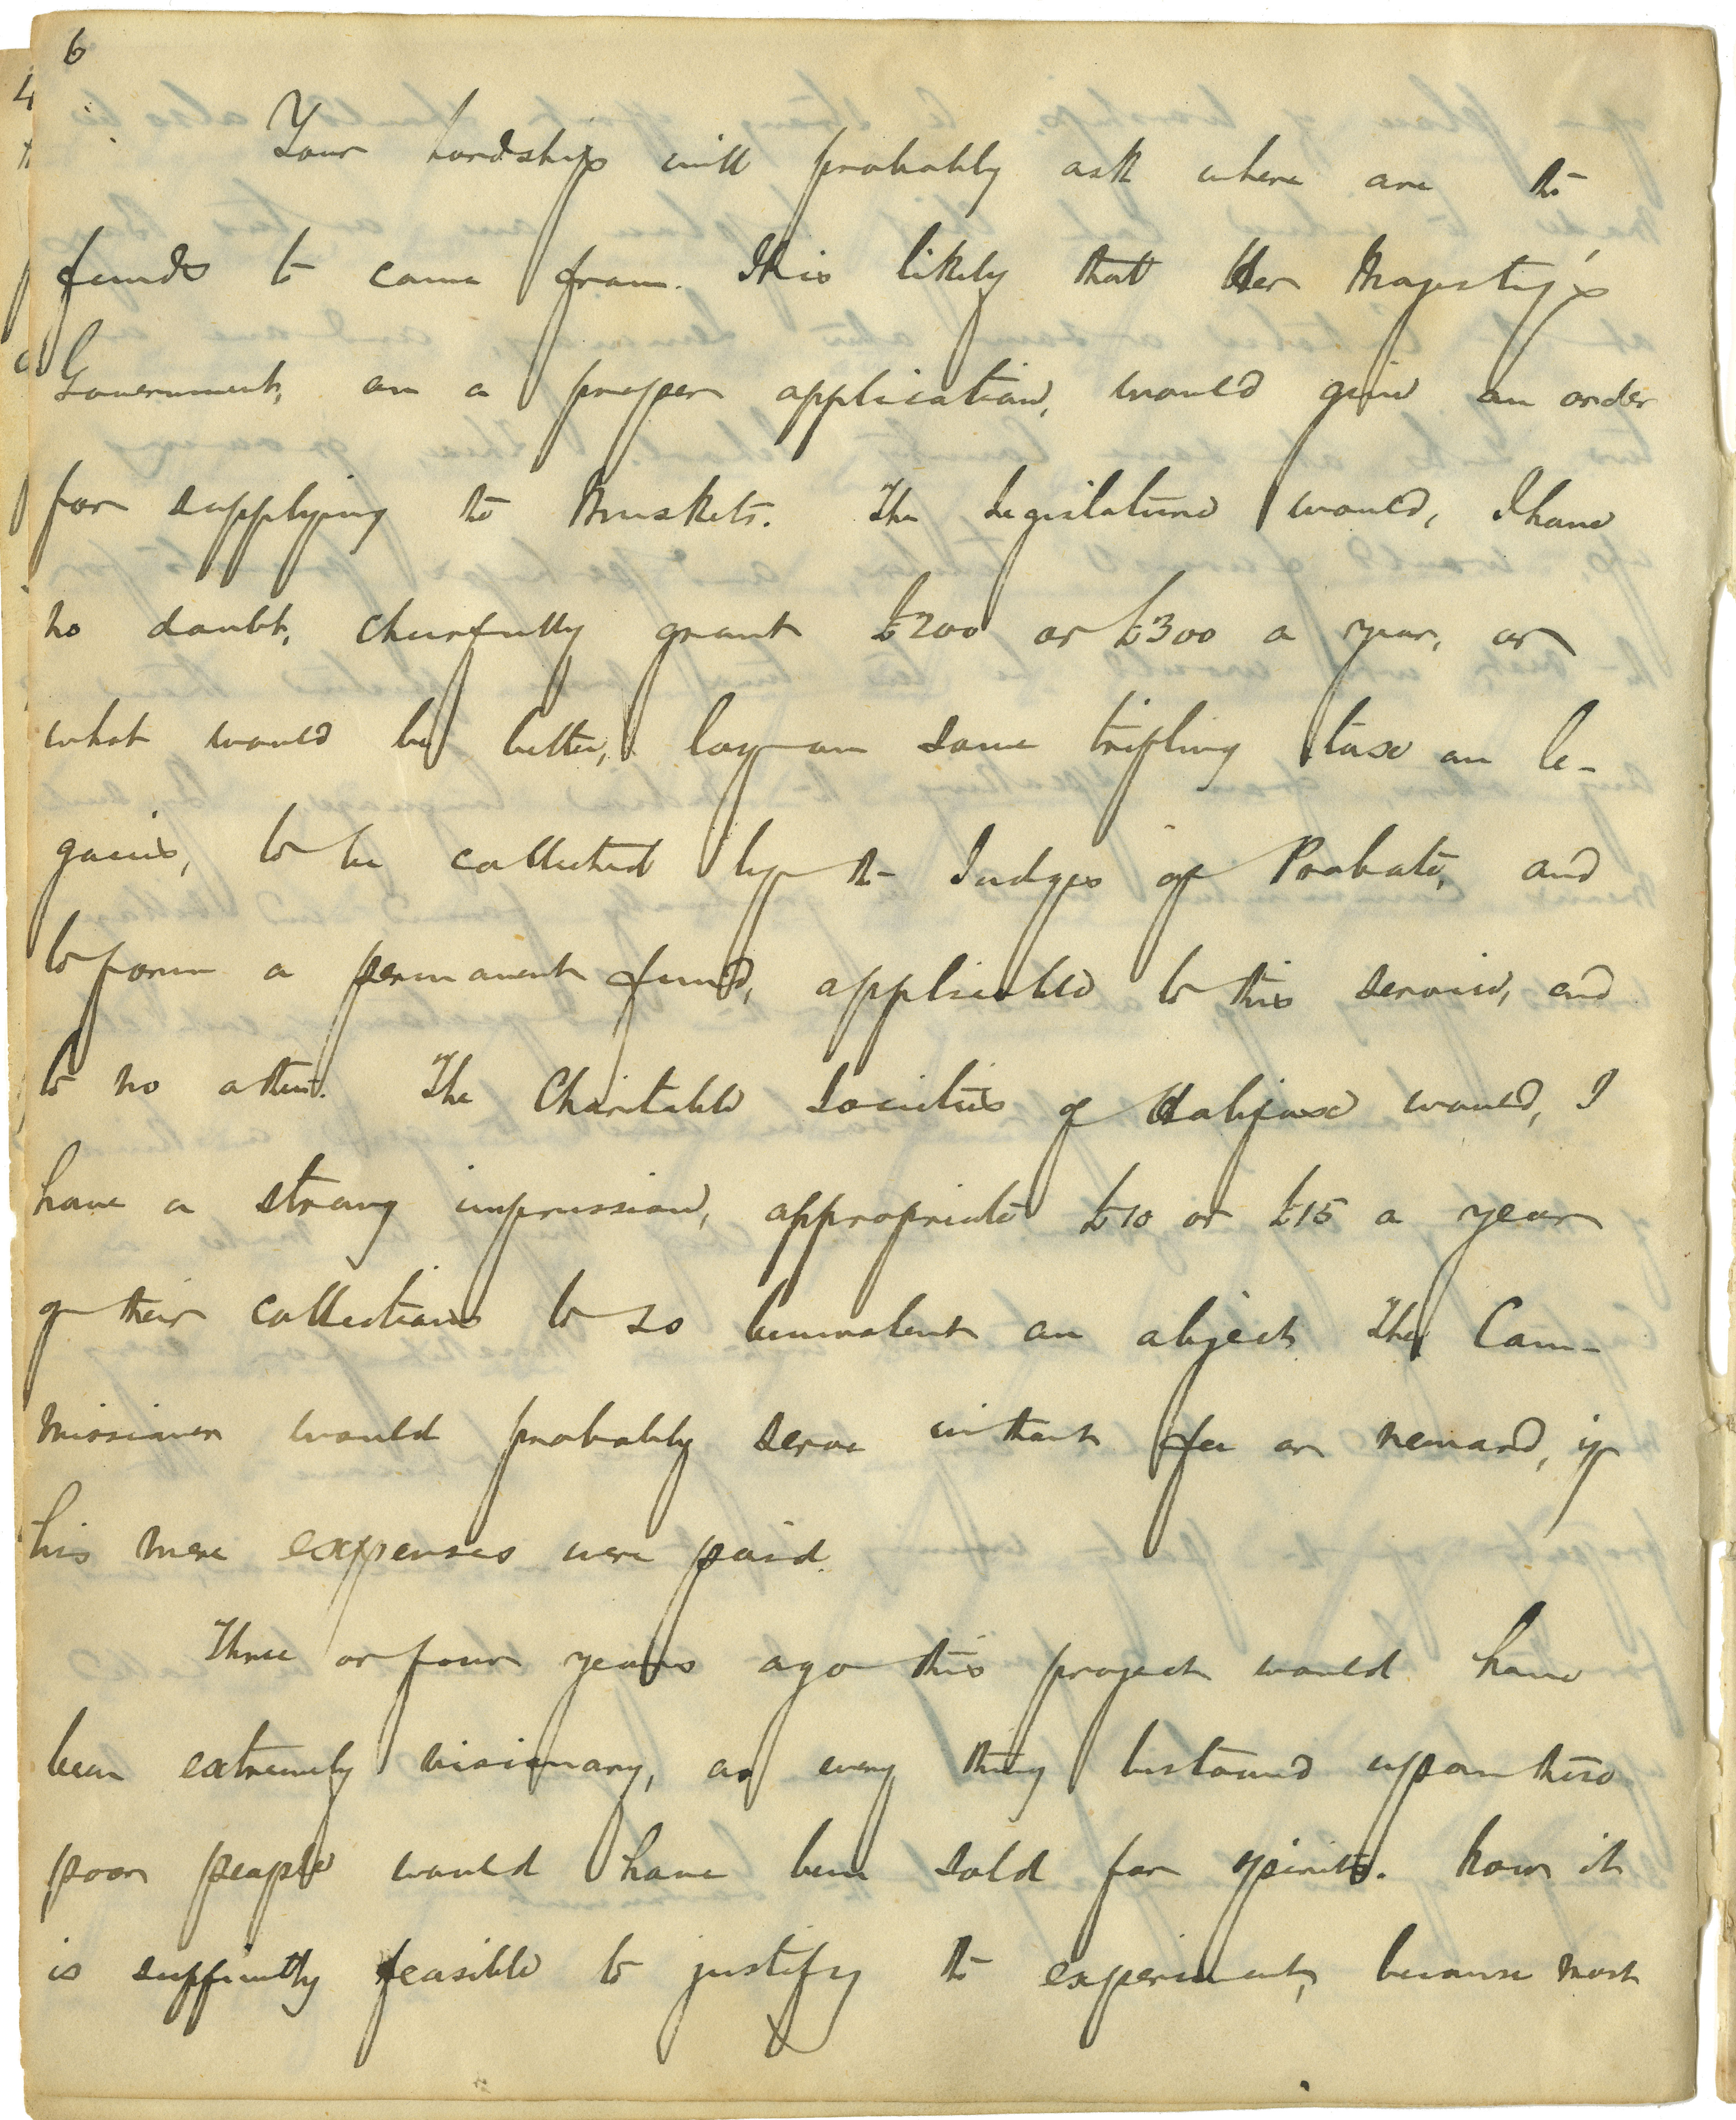 6
Your Lordship will probably ask where are the
funds to come from. It is likely that Her Majesty's
Government, on a proper application, would give an order
for supplying the Muskets. The Legislature would, I have
no doubt, cheerfully grant £200 or £300 a year, or
what would be better, lay on some trifling tax on le-
gacies, to be collected by the Judges of Probate, and
to form a permanent fund, applicable to this service, and
to no other. The Charitable Societies of Halifax would, I
have a strong impression, appropriate £10 or £15 a year
of their collections to so benevolent an object. The Com-
missioner would probably serve without fee or reward, if
his mere expenses were paid.
Three or four years ago this project would have
been extremely visionary, as every thing bestowed upon these
poor people would have been sold for spirits. Now it
is sufficiently feasible to justify the experiment, because most